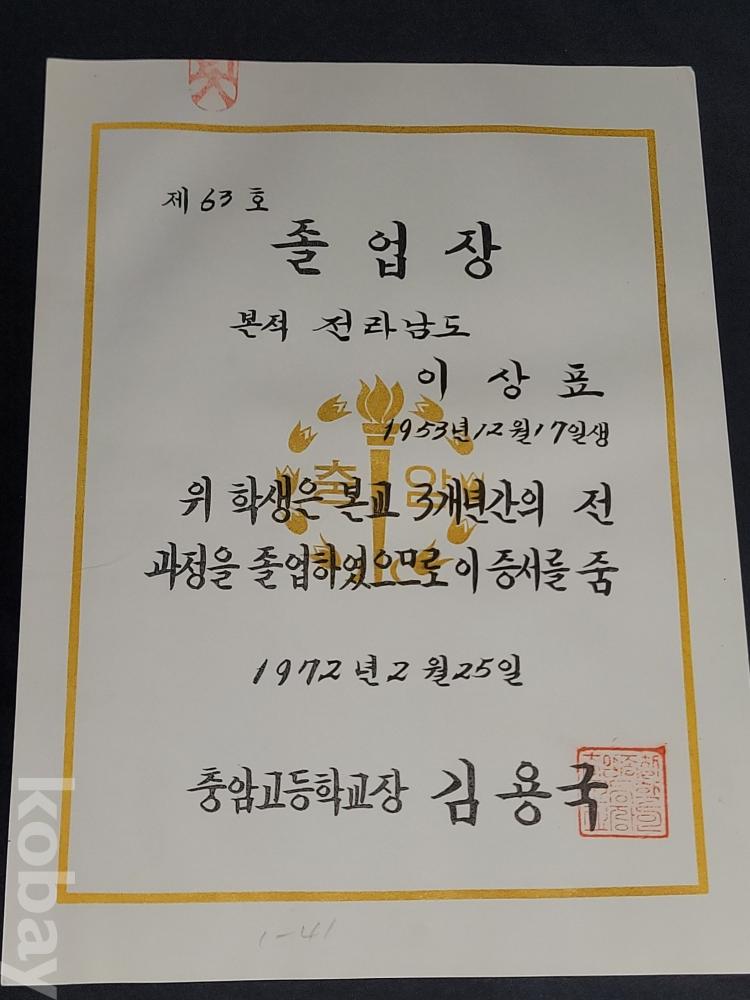 제 63 호
졸 업 장
본적 전라남도
이 상 표
1953년 12월 17일생
충 암
위 학생은 본교 3개년간의 전
과정을 졸업하였으므로 이 증서를 줌
1972년 2월 25일
충암고등학교장 김용국
1-41
kobay